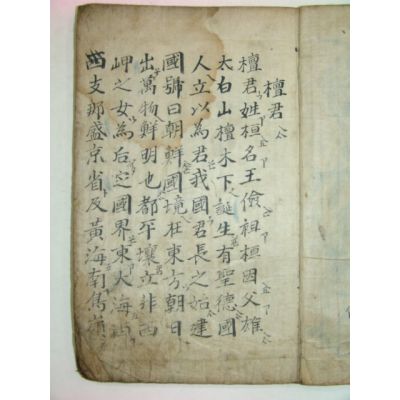 檀君
檀君姓桓名王儉祖桓因父雄
太白山檀木下誕生有聖德國
人立以為君我國君長之始建
國號曰朝鮮國境在東方朝日
出萬物鮮明也都平壤立非西
岬之女為后定國界東大海
西支那盛京省及黃海南鳥嶺